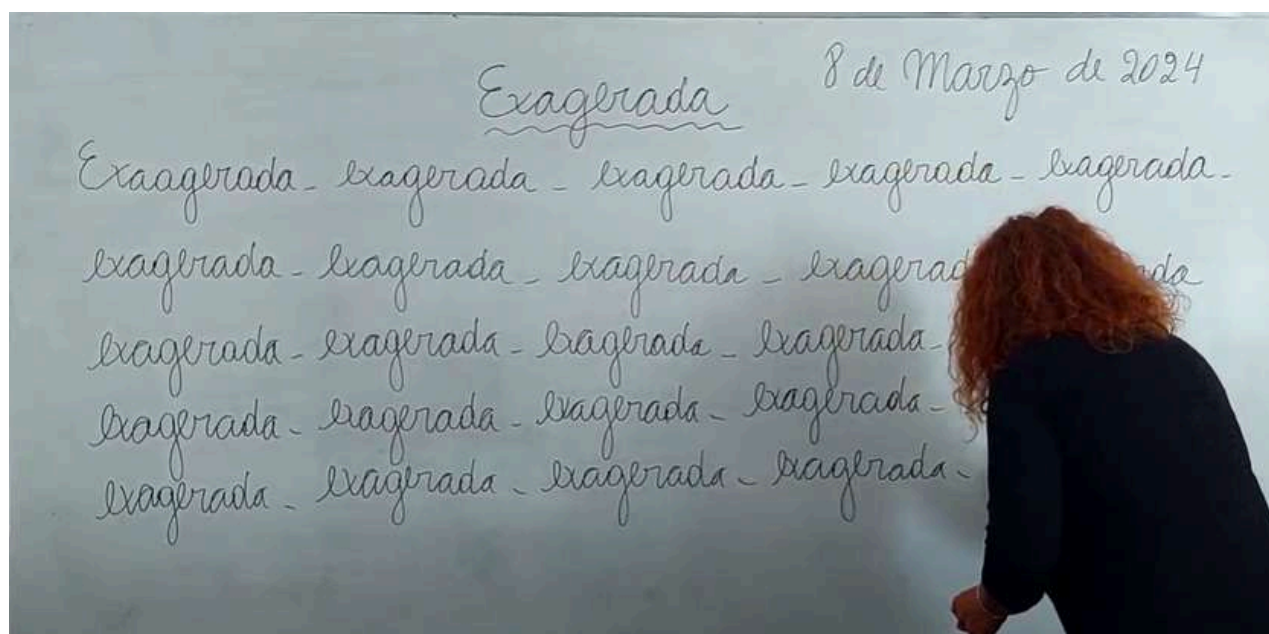 8 de Marzo de 2024
Exagerada
Exaagerada - exagerada - exagerada - exagerada - exagerada -
exagerada - exagerada - exagerada - exagerad da
exagerada - exagerada - exagerada - exagerada -
exagerada - exagerada - exagerada - exagerada -
exagerada - exagerada - exagerada - exagerada -